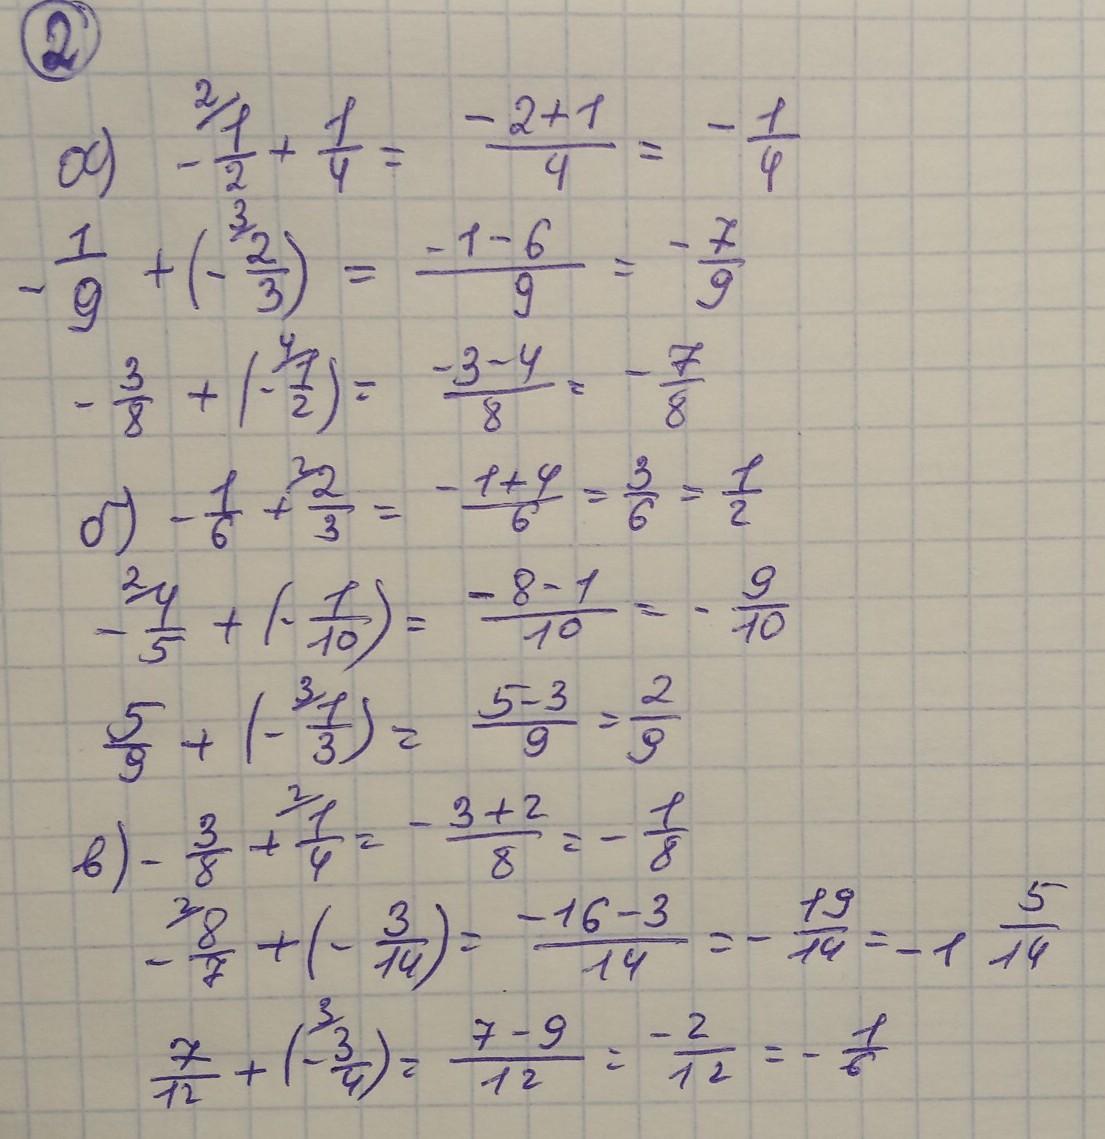 2
а) -²⁄1/2 + 1/4 = -2+1/4 = -1/4
-1/9 + (-³⁄2/3) = -1-6/9 = -7/9
-3/8 + (-⁴⁄1/2) = -3-4/8 = -7/8
б) -1/6 + ²⁄2/3 = -1+4/6 = 3/6 = 1/2
-²⁄4/5 + (-1/10) = -8-1/10 = -9/10
5/9 + (-³⁄1/3) = 5-3/9 = 2/9
в) -3/8 + ²⁄1/4 = -3+2/8 = -1/8
-²⁄8/7 + (-3/14) = -16-3/14 = -19/14 = -1 5/14
7/12 + (-³⁄3/4) = 7-9/12 = -2/12 = -1/6